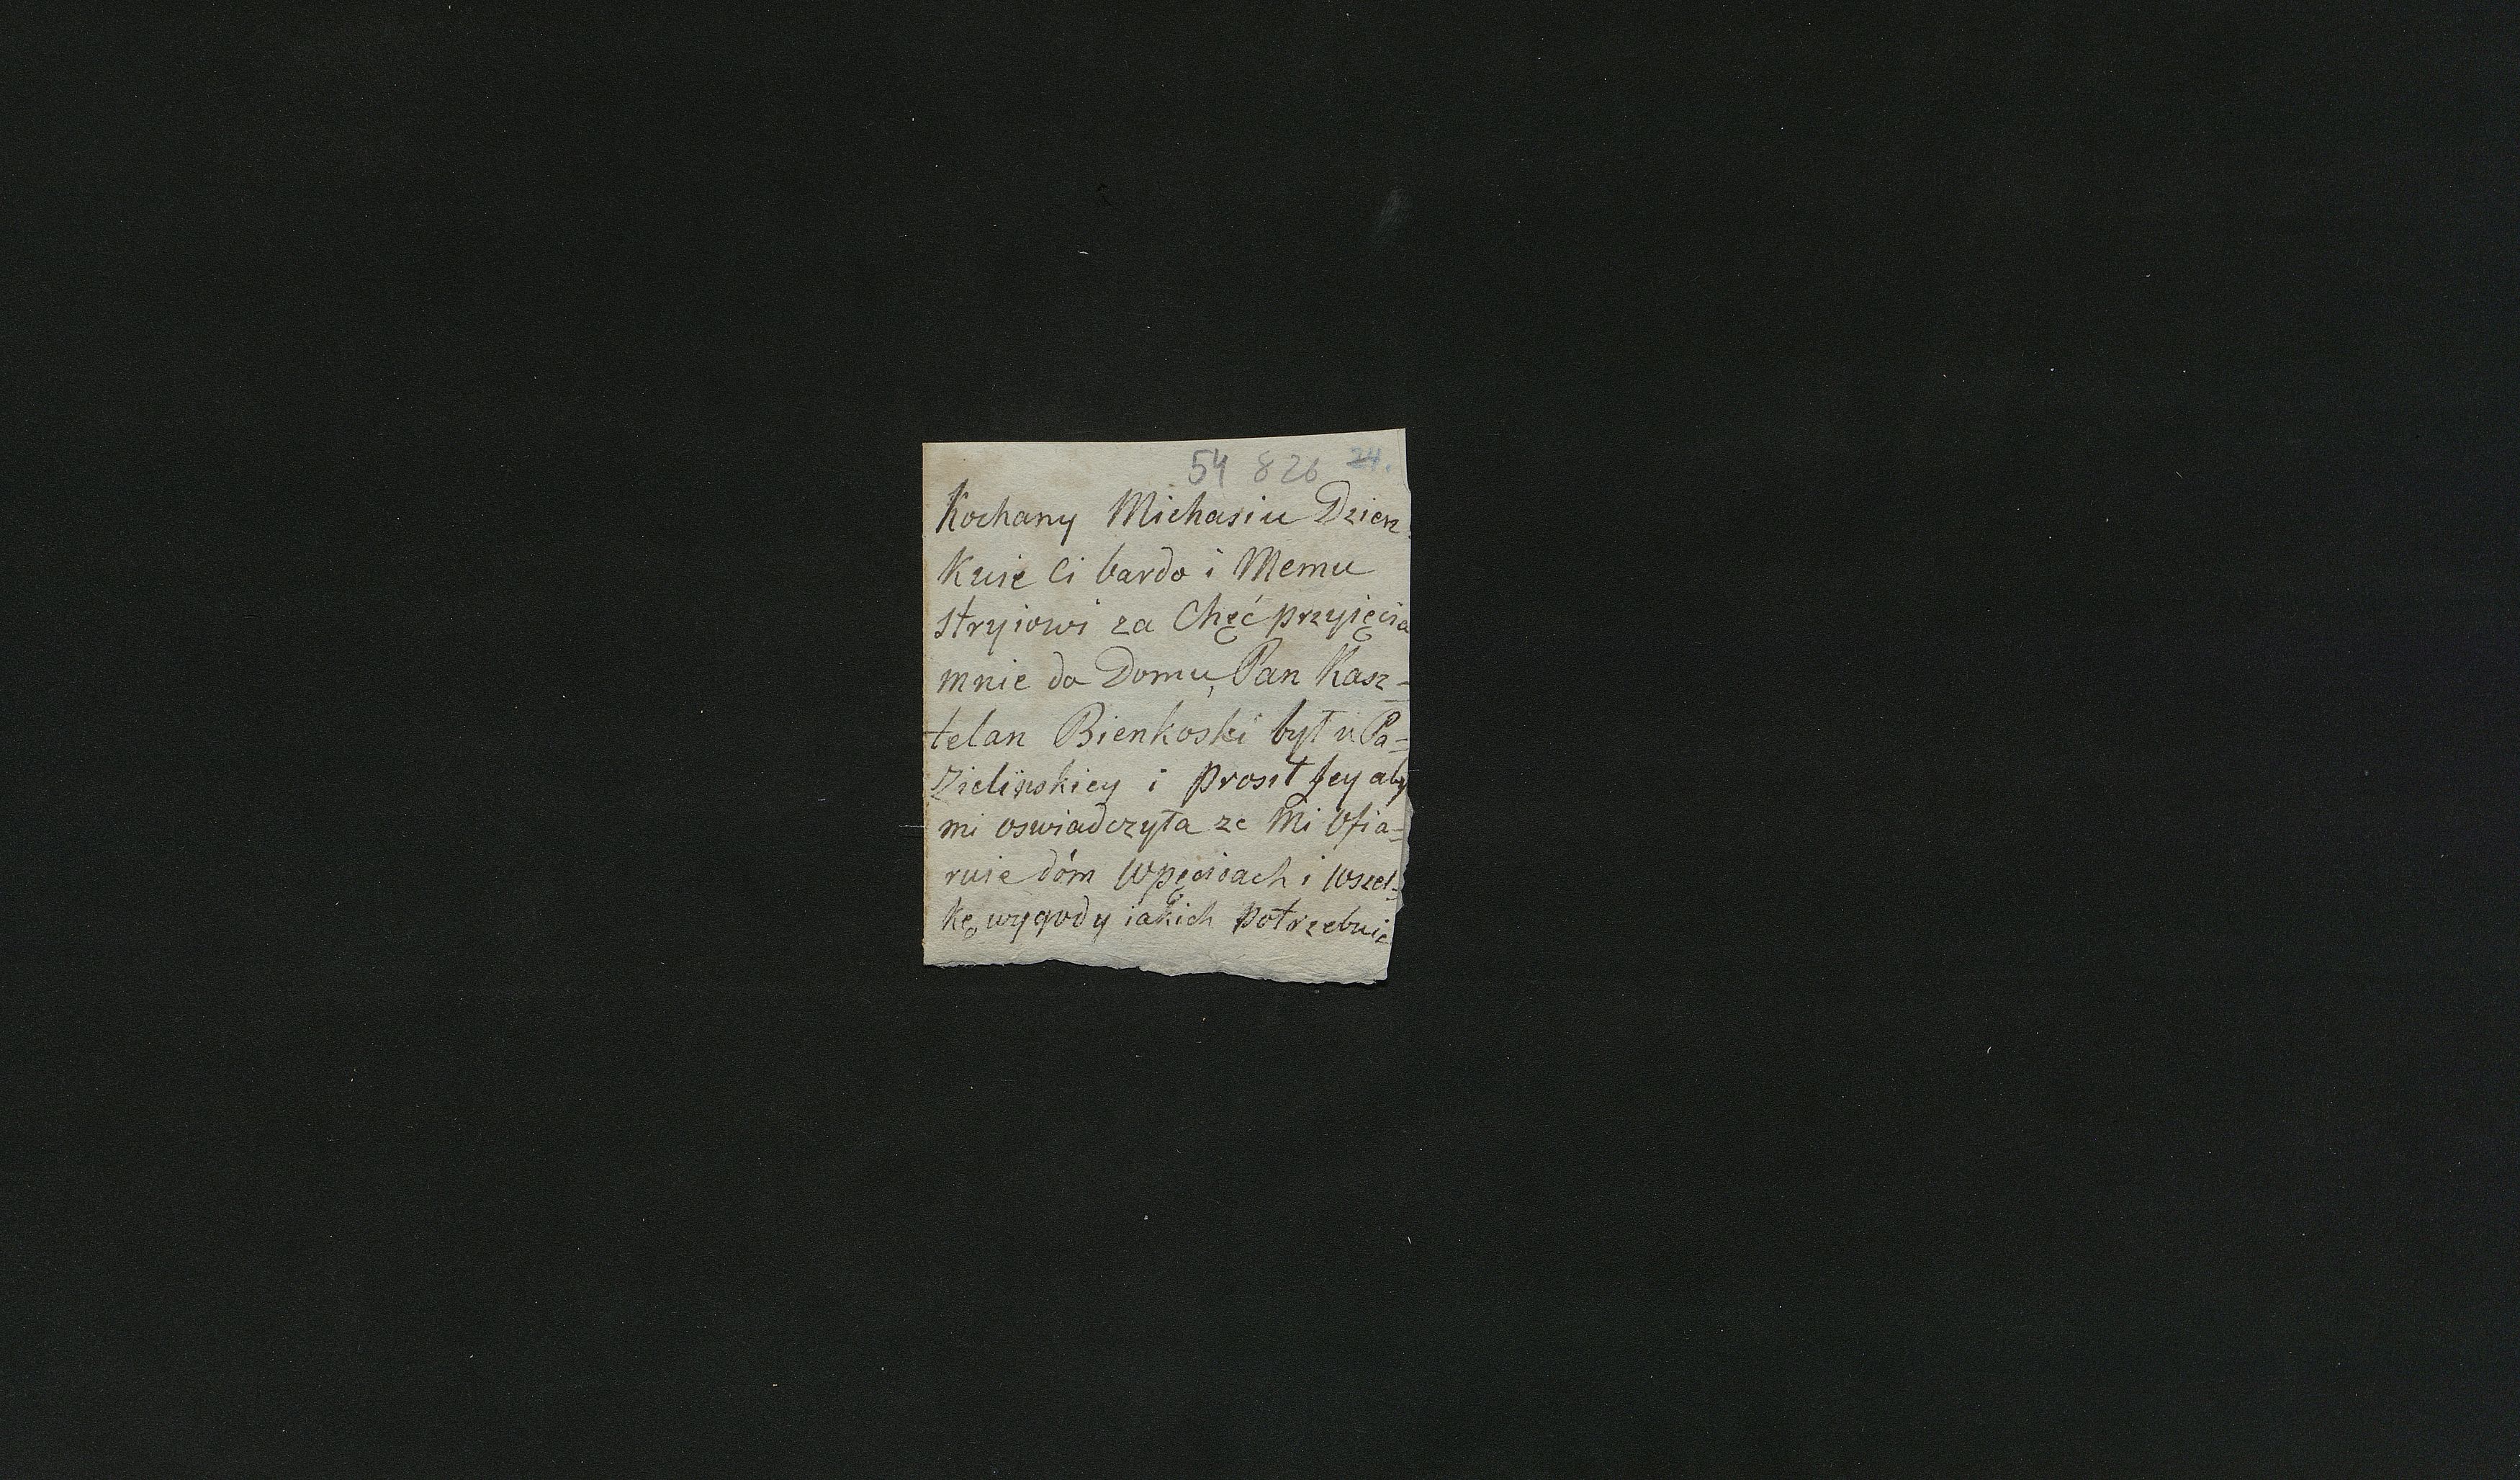 54 826 24.
Kochany Michasiu Dzien
Kuie Ci bardo i Memu
stryiowi za Chęć przyięcia
mnie do Domu, Pan Kasz-
telan Bienkoski był u Pa=
Zielinskiey i prosił Jey aby
mi oswiadczyła ze Mi Ofia=
ruie dóm w Pęcicach i wszel=
kę wygody iakich potrzebuie